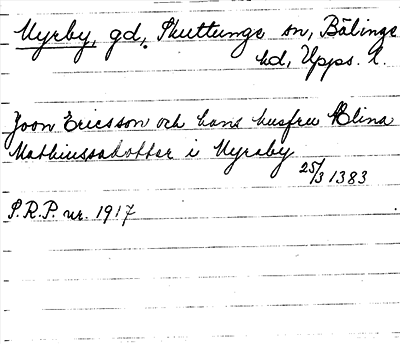 Myrby, gd, Skuttunge sn, Bälinge
hd, Upps. l.
Joon Ericsson och hans husfru Elina
Mathiussadotter i Myraby
25/3 1383
S.R.P. nr. 1917